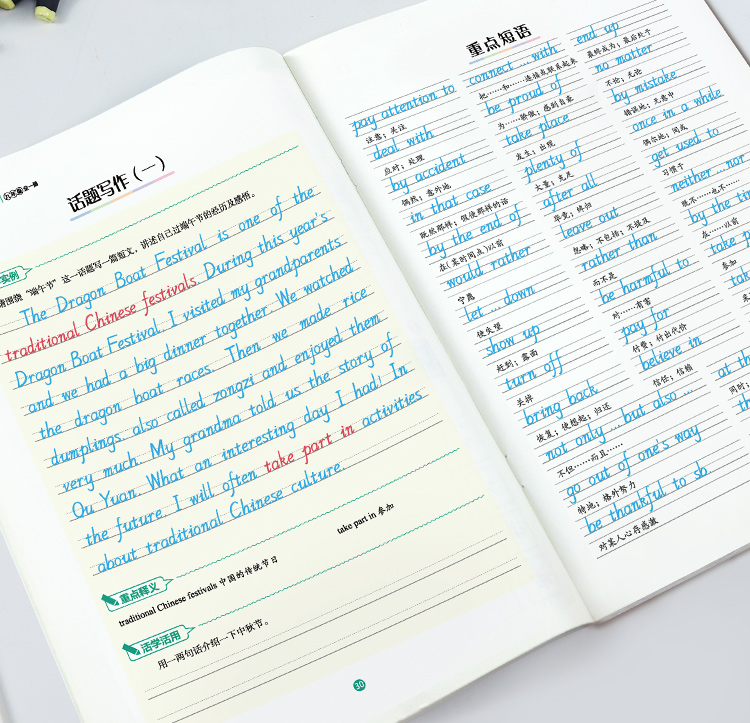 话题写作（一）
实例
请围绕“端午节”这一话题写一篇短文，讲述自己过端午节的经历及感悟。
The Dragon Boat Festival is one of the
traditional Chinese festivals. During this year's
Dragon Boat Festival, I visited my grandparents
and we had a big dinner together. We watched
the dragon boat races. Then we made rice
dumplings, also called zongzi and enjoyed them
very much. My grandma told us the story of
Qu Yuan. What an interesting day I had! In
the future, I will often take part in activities
about traditional Chinese culture.
重点释义
traditional Chinese festivals 中国的传统节日
take part in 参加
活学活用
用一两句话介绍一下中秋节。
30
重点短语
pay attention to
注意；关注
deal with
应对；处理
by accident
偶然；意外地
in that case
既然那样；假使那样的话
by the end of
在(某时间点)以前
would rather
宁愿
let ... down
使失望
show up
赶到；露面
turn off
关掉
bring back
恢复；使想起；归还
not only ... but also ...
不但……而且……
go out of one's way
特地；格外努力
be thankful to sb
对某人心存感激
connect ... with
把……和……连接或联系起来
be proud of
为……骄傲；感到自豪
take place
发生；出现
plenty of
大量；充足
after all
毕竟；终归
leave out
忽略；不包括；不提及
rather than
而不是
be harmful to
对……有害
pay for
付费；付出代价
believe in
信任；信赖
end up
最终成为；最后处于
no matter
不论；无论
by mistake
错误地；无意中
once in a while
偶尔地；间或
get used to
习惯于
neither ... nor
既不…也不…
by the ti
在……以前
take p
参加
tak
at th
同时；
th